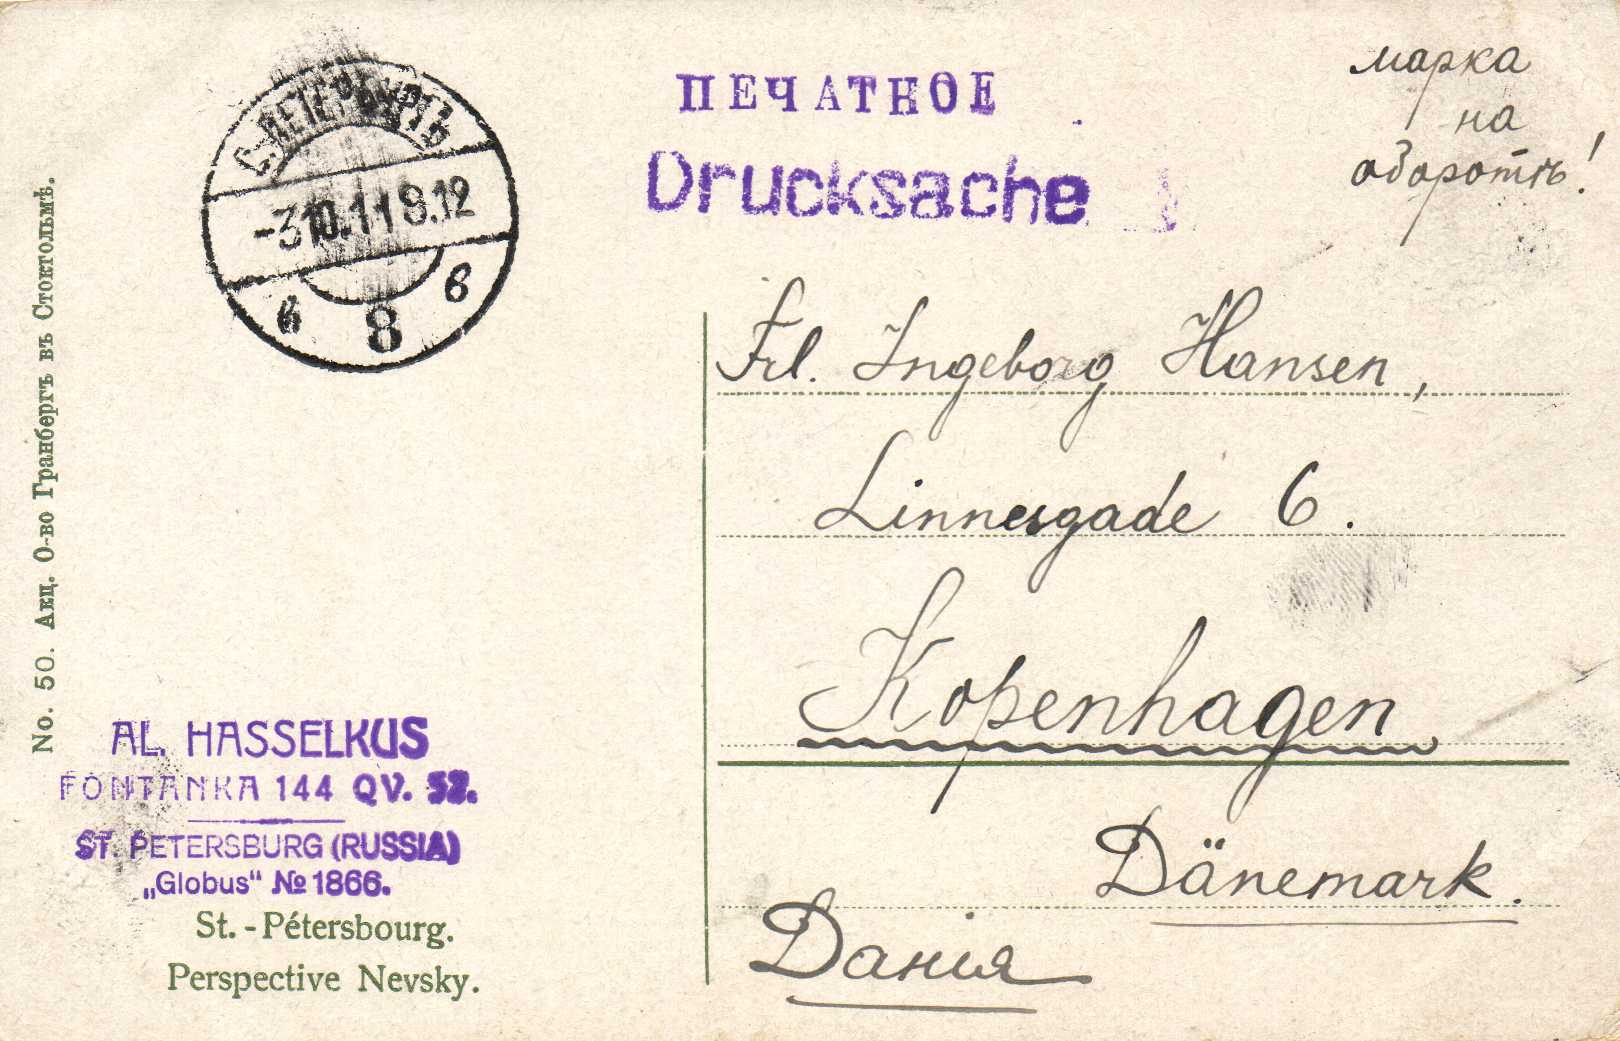 С.ПЕТЕРБУРГЪ
-3.10.11 8.12
в 8 в
ПЕЧАТНОЕ
Drucksache
марка
на
оборотѣ!
No. 50. Акц. О-во Гранбергъ въ Стокгольмѣ.
Frl. Ingeborg Hansen,
Linnesgade 6.
Kopenhagen
Dänemark.
Данія
AL. HASSELKUS
FONTANKA 144 QV. 52.
ST. PETERSBURG (RUSSIA)
„Globus“ № 1866.
St.-Pétersbourg.
Perspective Nevsky.